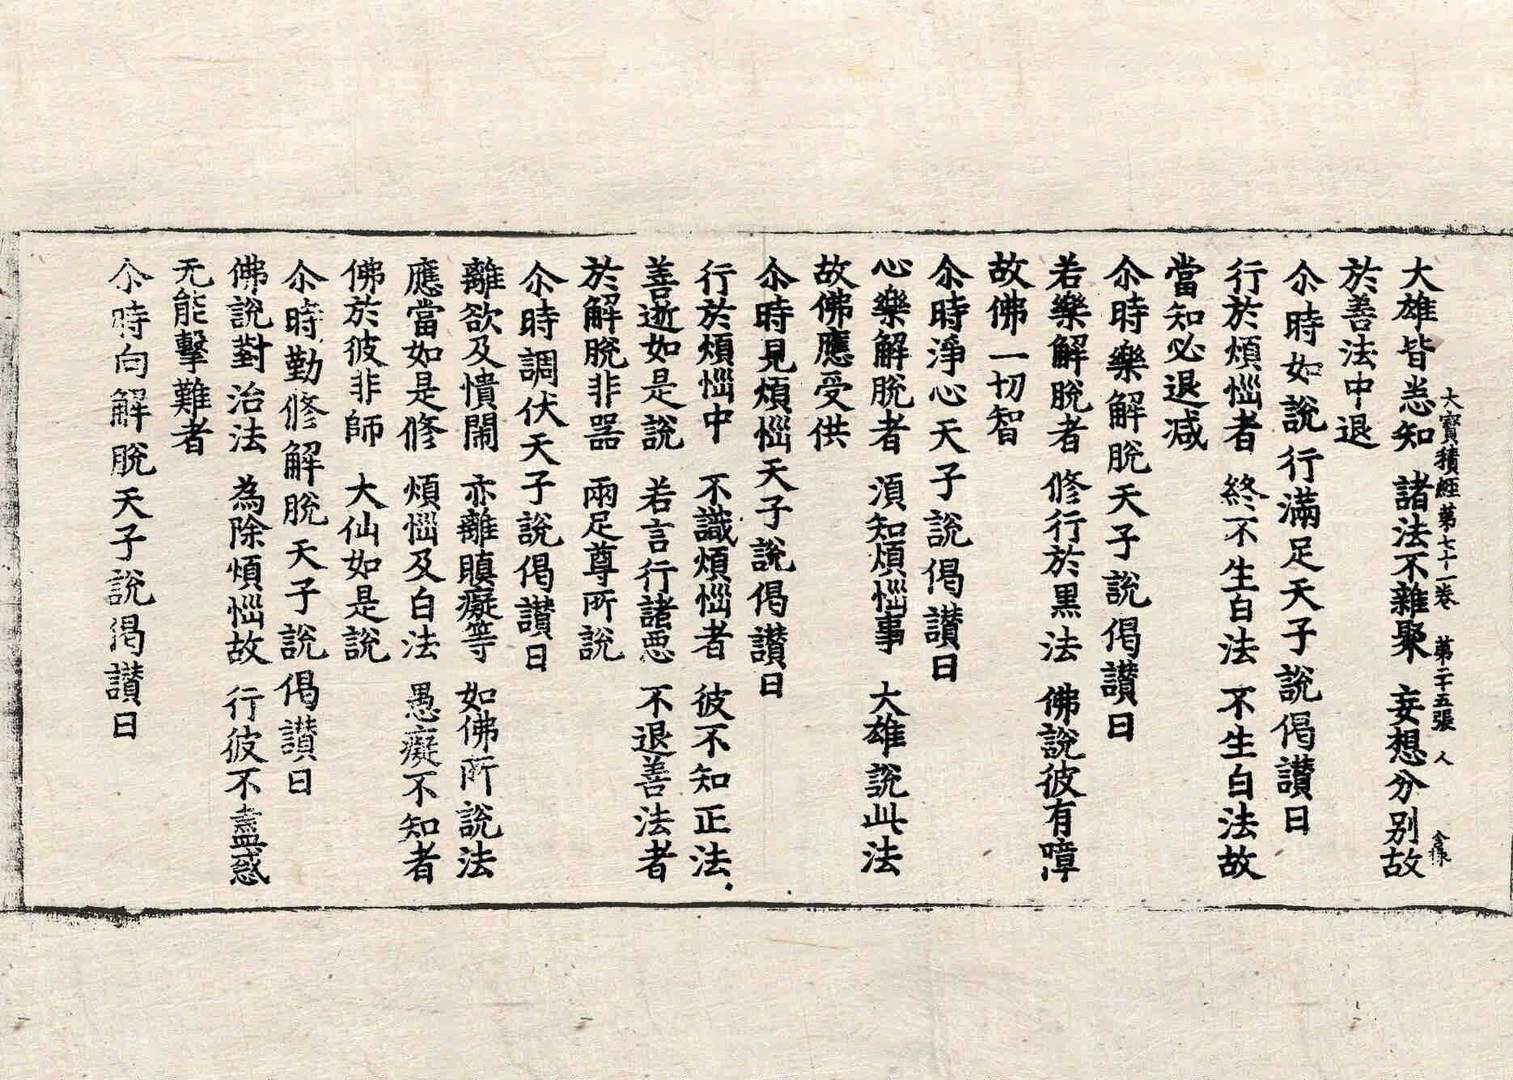 大寶積經第七十一卷　第二十五張　人
大雄皆悉知　諸法不雜聚　妄想分別故
於善法中退
尒時如說行滿足天子說偈讃曰
行於煩惱者　終不生白法　不生白法故
當知必退减
尒時樂解脫天子說偈讃曰
若樂解脫者　修行於黑法　佛說彼有障
故佛一切智
尒時淨心天子說偈讃曰
心樂解脫者　湏知煩惱事　大雄說此法
故佛應受供
尒時見煩惱天子說偈讃曰
行於煩惱中　不識煩惱者　彼不知正法
善逝如是說　若言行諸惡　不退善法者
於解脫非器　兩足尊所說
尒時調伏天子說偈讃曰
離欲及憒閙　亦離瞋癡等　如佛所說法
應當如是修　煩惱及白法　愚癡不知者
佛於彼非師　大仙如是說
尒時勤修解脫天子說偈讃曰
佛說對治法　為除煩惱故　行彼不盡惑
无能擊難者
尒時向解脫天子說偈讃曰